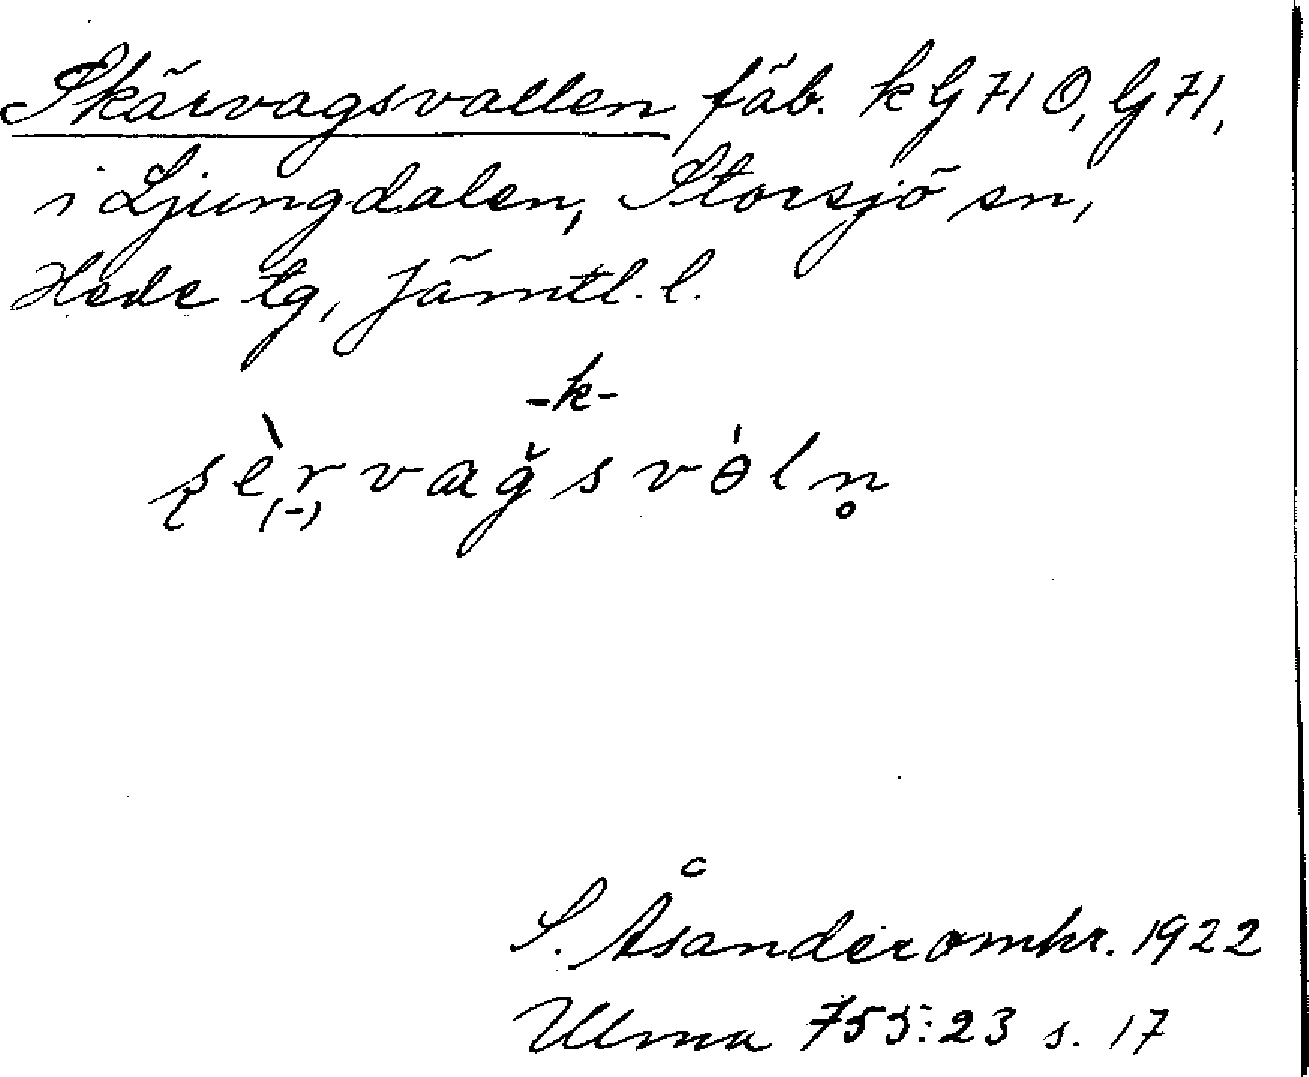 Skärvagsvallen fäb. k G 71 O, G 71,
i Ljungdalen, Storsjö sn,
Hede tg, Jämtl. l.
-k-
S. Åsander omkr. 1922
Ulma 755:23 s. 17